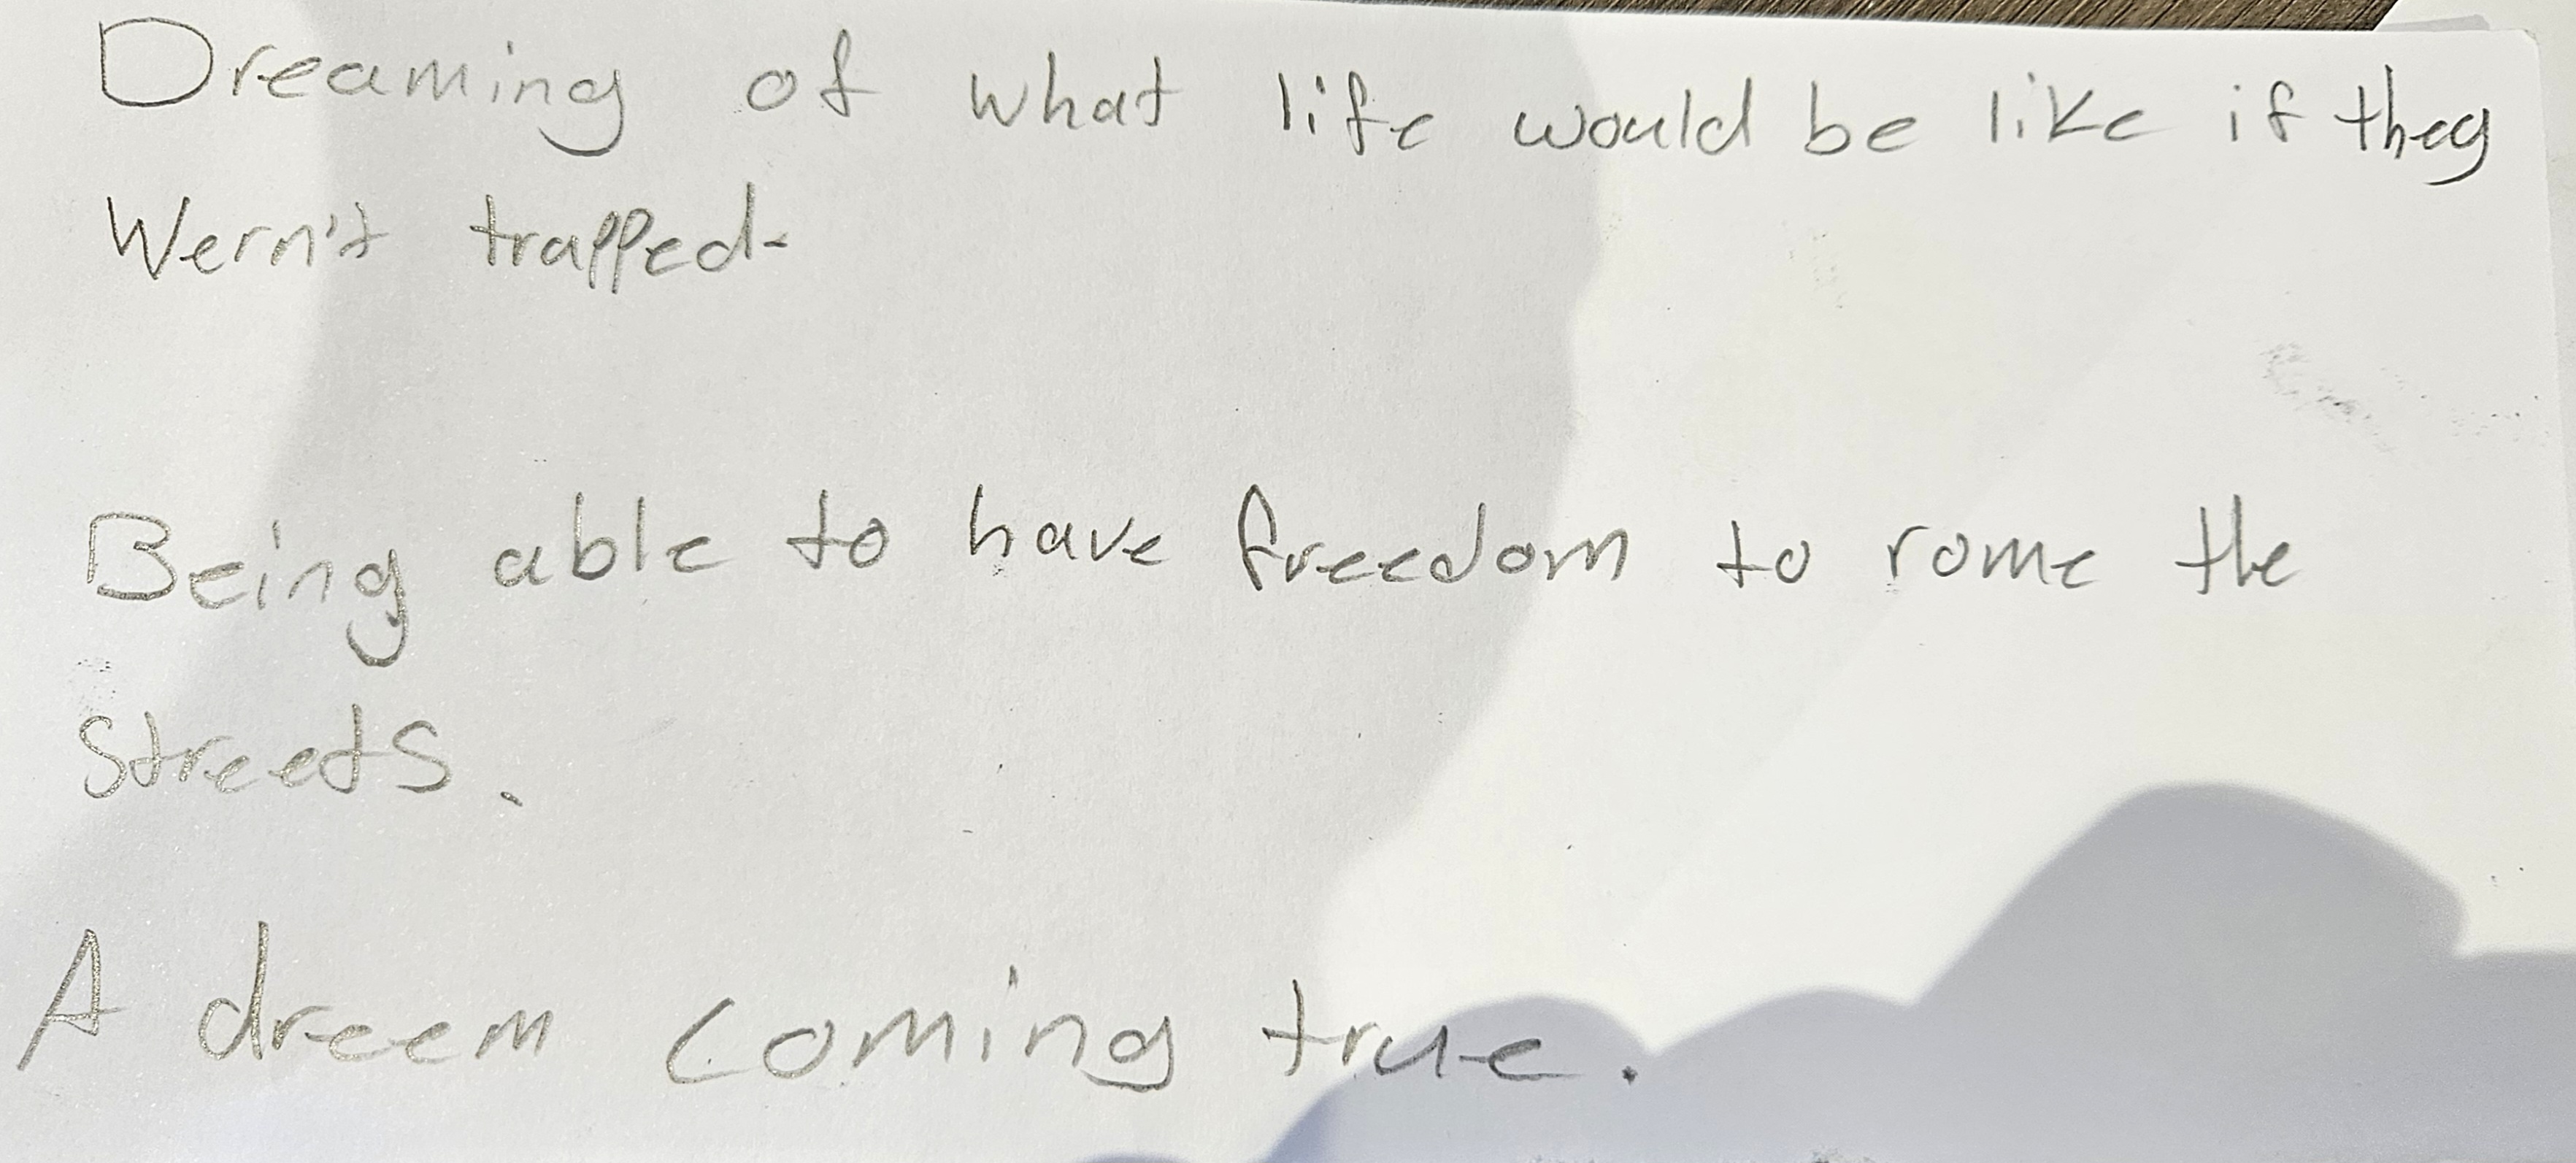 Dreaming of what life would be like if they
Wern't trapped.
Being able to have freedom to rome the
Streets.
A dreem coming true.